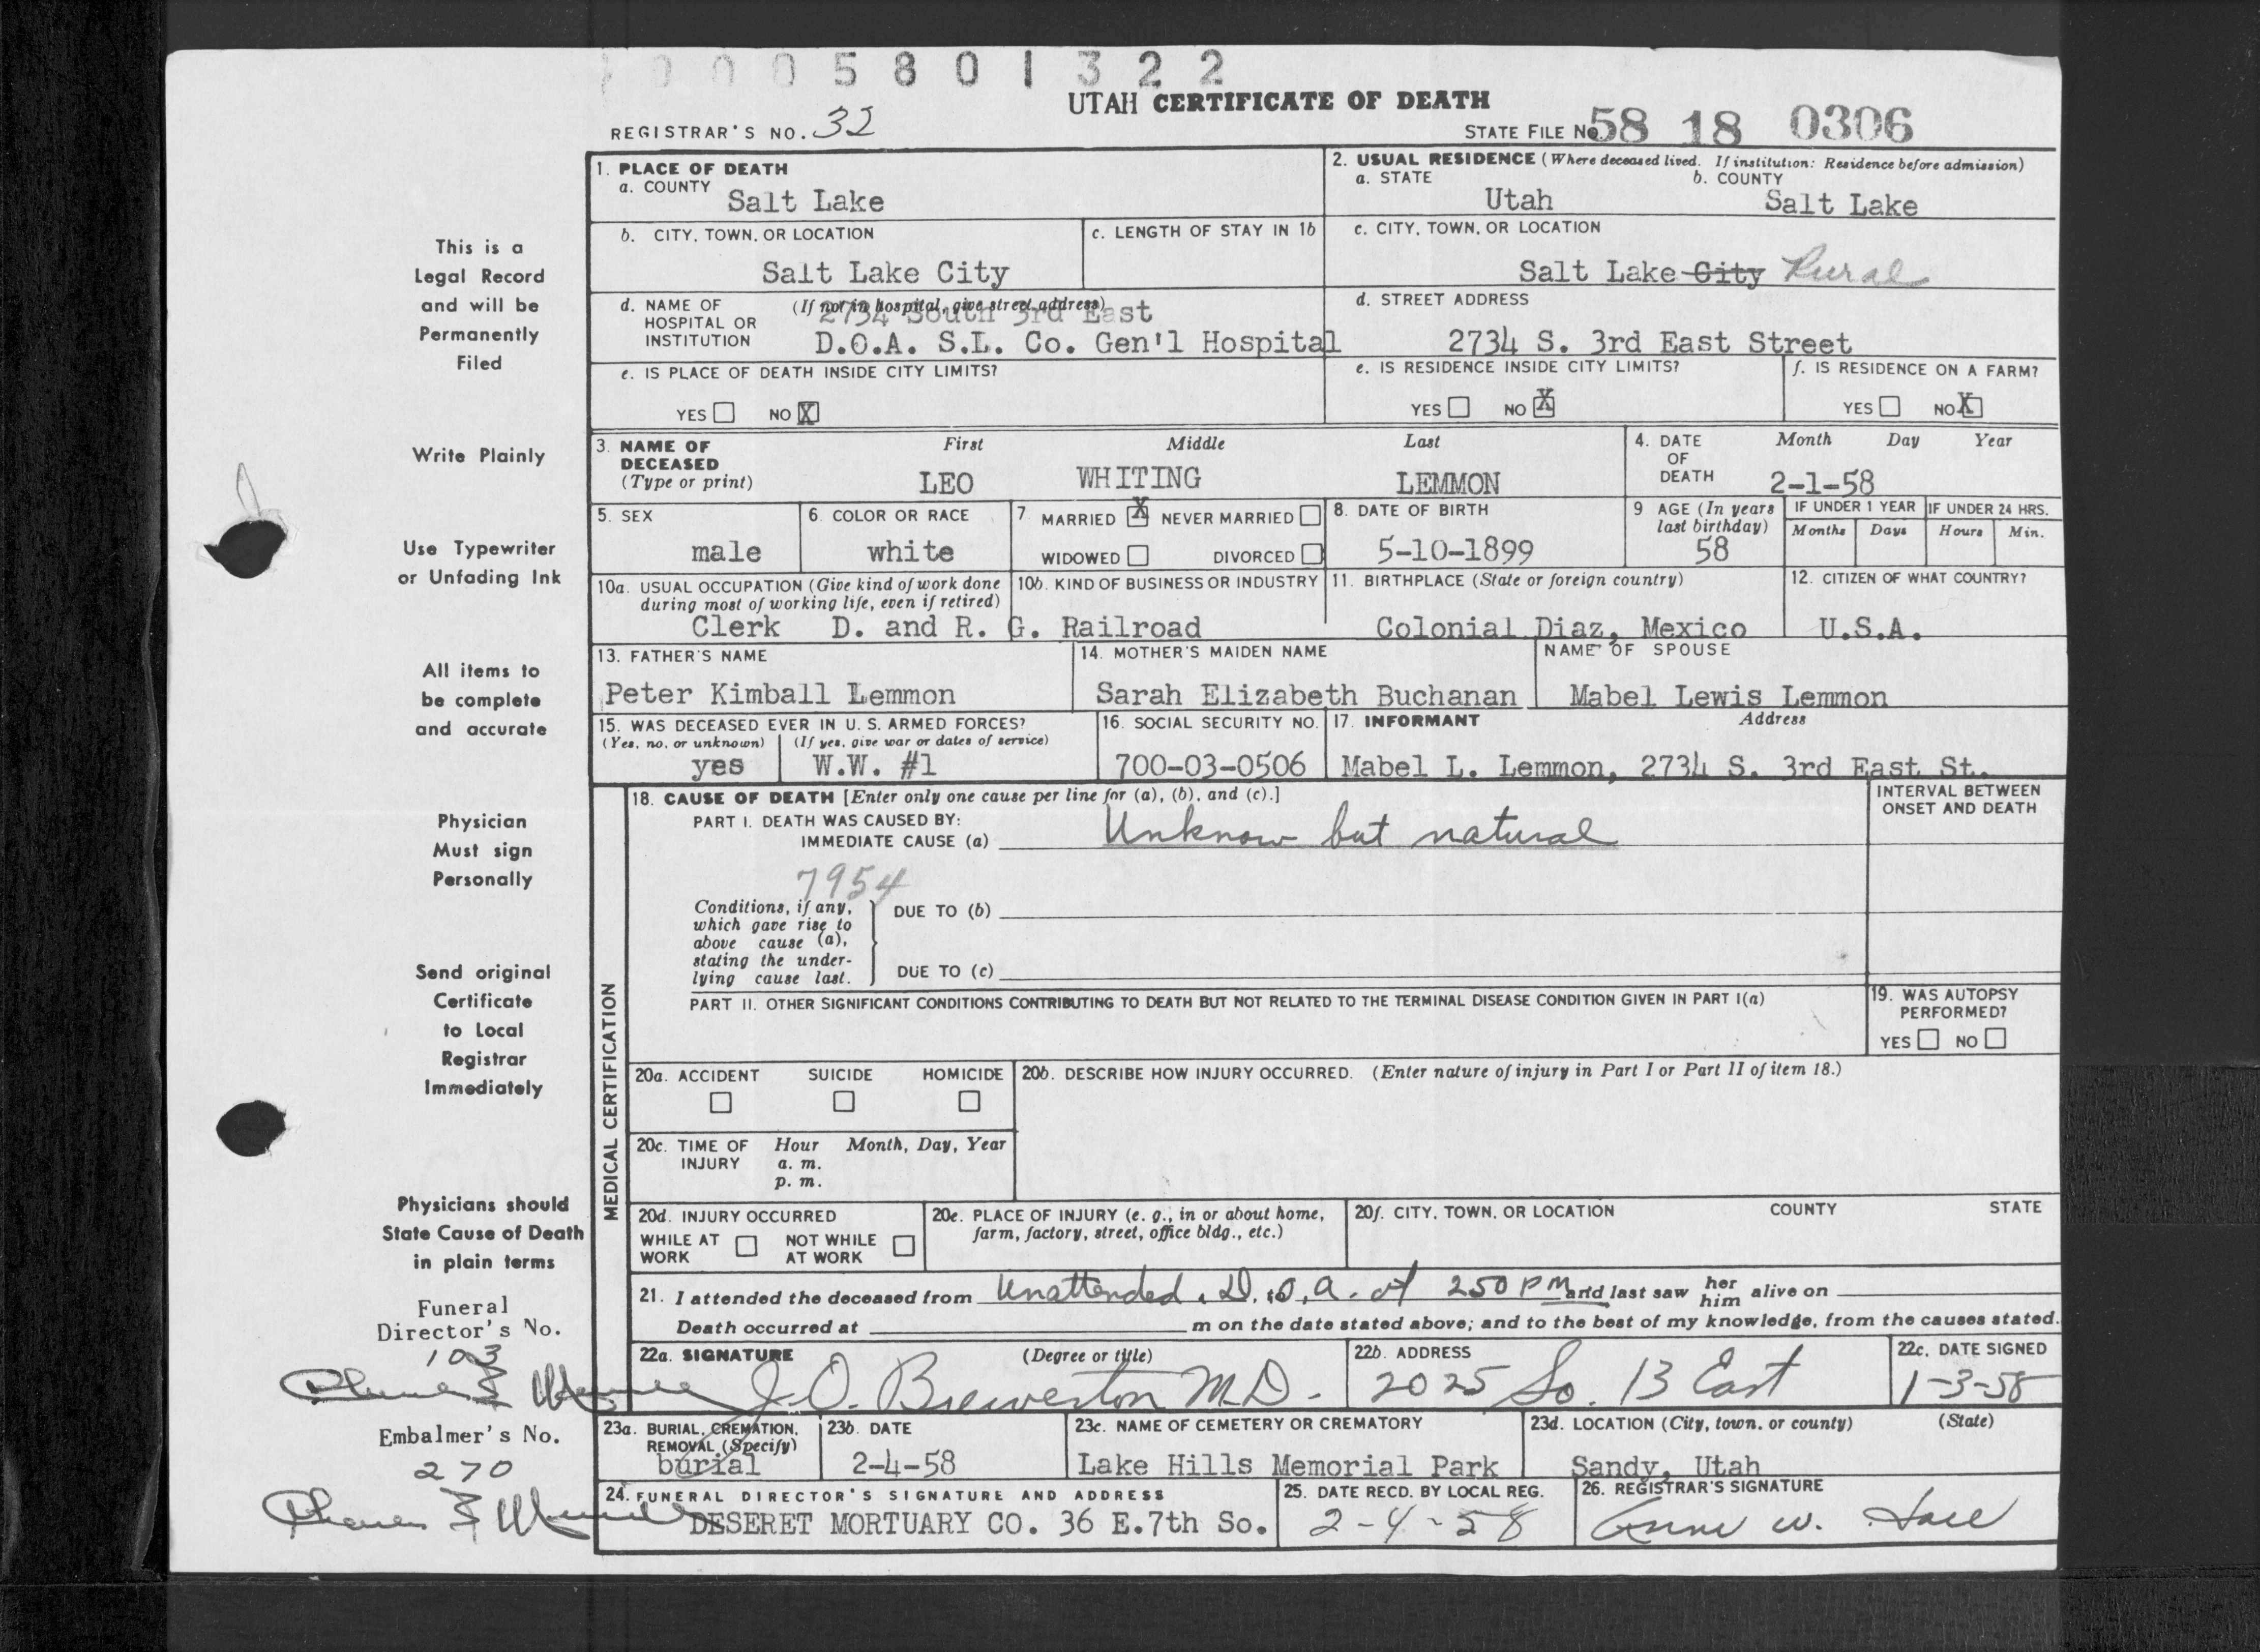 0005801322
UTAH CERTIFICATE OF DEATH
REGISTRAR'S NO. 32
STATE FILE No. 58 18 0306
1. PLACE OF DEATH
a. COUNTY
Salt Lake
2. USUAL RESIDENCE (Where deceased lived. If institution: Residence before admission)
a. STATE b. COUNTY
Utah Salt Lake
b. CITY, TOWN, OR LOCATION
Salt Lake City
c. LENGTH OF STAY IN 1b
c. CITY, TOWN, OR LOCATION
Salt Lake City Rural
d. NAME OF HOSPITAL OR INSTITUTION
(If not in hospital, give street address)
2734 South 3rd East
D.O.A. S.L. Co. Gen'l Hospital
d. STREET ADDRESS
2734 S. 3rd East Street
e. IS PLACE OF DEATH INSIDE CITY LIMITS?
YES NO X
e. IS RESIDENCE INSIDE CITY LIMITS?
YES NO X
f. IS RESIDENCE ON A FARM?
YES NO X
3. NAME OF DECEASED
(Type or print)
First Middle Last
LEO WHITING LEMMON
4. DATE OF DEATH
Month Day Year
2-1-58
5. SEX
male
6. COLOR OR RACE
white
7. MARRIED X NEVER MARRIED
WIDOWED DIVORCED
8. DATE OF BIRTH
5-10-1899
9 AGE (In years last birthday)
58
IF UNDER 1 YEAR
Months Days
IF UNDER 24 HRS.
Hours Min.
10a. USUAL OCCUPATION (Give kind of work done during most of working life, even if retired)
10b. KIND OF BUSINESS OR INDUSTRY
Clerk D. and R. G. Railroad
11. BIRTHPLACE (State or foreign country)
Colonial Diaz, Mexico
12. CITIZEN OF WHAT COUNTRY?
U.S.A.
13. FATHER'S NAME
Peter Kimball Lemmon
14. MOTHER'S MAIDEN NAME
Sarah Elizabeth Buchanan
NAME OF SPOUSE
Mabel Lewis Lemmon
15. WAS DECEASED EVER IN U. S. ARMED FORCES?
(Yes, no, or unknown) (If yes, give war or dates of service)
yes W.W. #1
16. SOCIAL SECURITY NO.
700-03-0506
17. INFORMANT Address
Mabel L. Lemmon, 2734 S. 3rd East St.
MEDICAL CERTIFICATION
18. CAUSE OF DEATH [Enter only one cause per line for (a), (b), and (c).]
INTERVAL BETWEEN ONSET AND DEATH
PART I. DEATH WAS CAUSED BY:
IMMEDIATE CAUSE (a) Unknow but natural
7954
Conditions, if any, which gave rise to above cause (a), stating the underlying cause last.
DUE TO (b)
DUE TO (c)
PART II. OTHER SIGNIFICANT CONDITIONS CONTRIBUTING TO DEATH BUT NOT RELATED TO THE TERMINAL DISEASE CONDITION GIVEN IN PART I(a)
19. WAS AUTOPSY PERFORMED?
YES NO
20a. ACCIDENT SUICIDE HOMICIDE
20b. DESCRIBE HOW INJURY OCCURRED. (Enter nature of injury in Part I or Part II of item 18.)
20c. TIME OF INJURY
Hour Month, Day, Year
a. m.
p. m.
20d. INJURY OCCURRED
WHILE AT WORK NOT WHILE AT WORK
20e. PLACE OF INJURY (e. g., in or about home, farm, factory, street, office bldg., etc.)
20f. CITY, TOWN, OR LOCATION COUNTY STATE
21. I attended the deceased from Unattended. D.O.A. at 250 PM and last saw her him alive on
Death occurred at m on the date stated above; and to the best of my knowledge, from the causes stated.
22a. SIGNATURE (Degree or title)
J. O. Brewerton M.D.
22b. ADDRESS
2025 So. 13 East
22c. DATE SIGNED
1-3-58
23a. BURIAL, CREMATION, REMOVAL (Specify)
burial
23b. DATE
2-4-58
23c. NAME OF CEMETERY OR CREMATORY
Lake Hills Memorial Park
23d. LOCATION (City, town, or county) (State)
Sandy, Utah
24. FUNERAL DIRECTOR'S SIGNATURE AND ADDRESS
DESERET MORTUARY CO. 36 E.7th So.
25. DATE RECD. BY LOCAL REG.
2-4-58
26. REGISTRAR'S SIGNATURE
W.
This is a
Legal Record
and will be
Permanently
Filed
Write Plainly
Use Typewriter
or Unfading Ink
All items to
be complete
and accurate
Physician
Must sign
Personally
Send original
Certificate
to Local
Registrar
Immediately
Physicians should
State Cause of Death
in plain terms
Funeral
Director's No.
103
Embalmer's No.
270